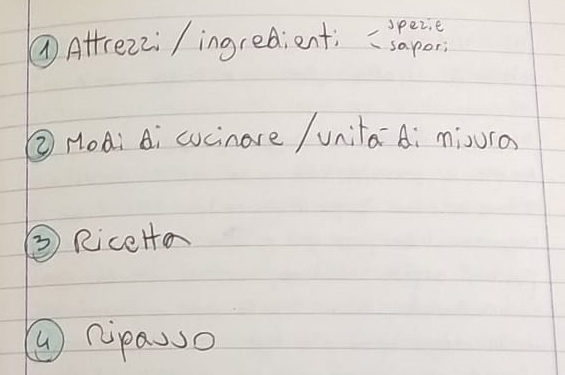 1 Attrezzi / ingredienti < spezie
sapori
2 Modi di cucinare / unità di misura
3 Ricetta
4 Ripasso